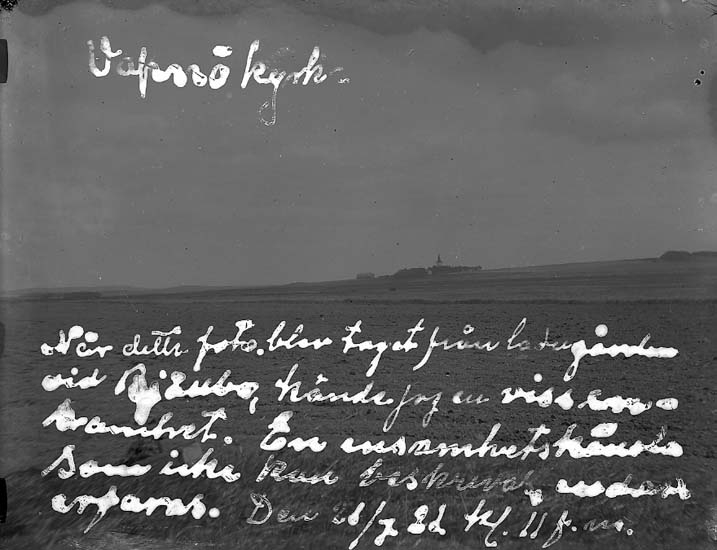 Vapssö kyrk.
När detta foto. blev taget från ladugården
vid Bjäubo, kände jag en viss en-
samhet. En ensamhetskänsla
som icke kan beskrivas, endast
erfaras. Den 28/7 32 kl. 11 f. m.